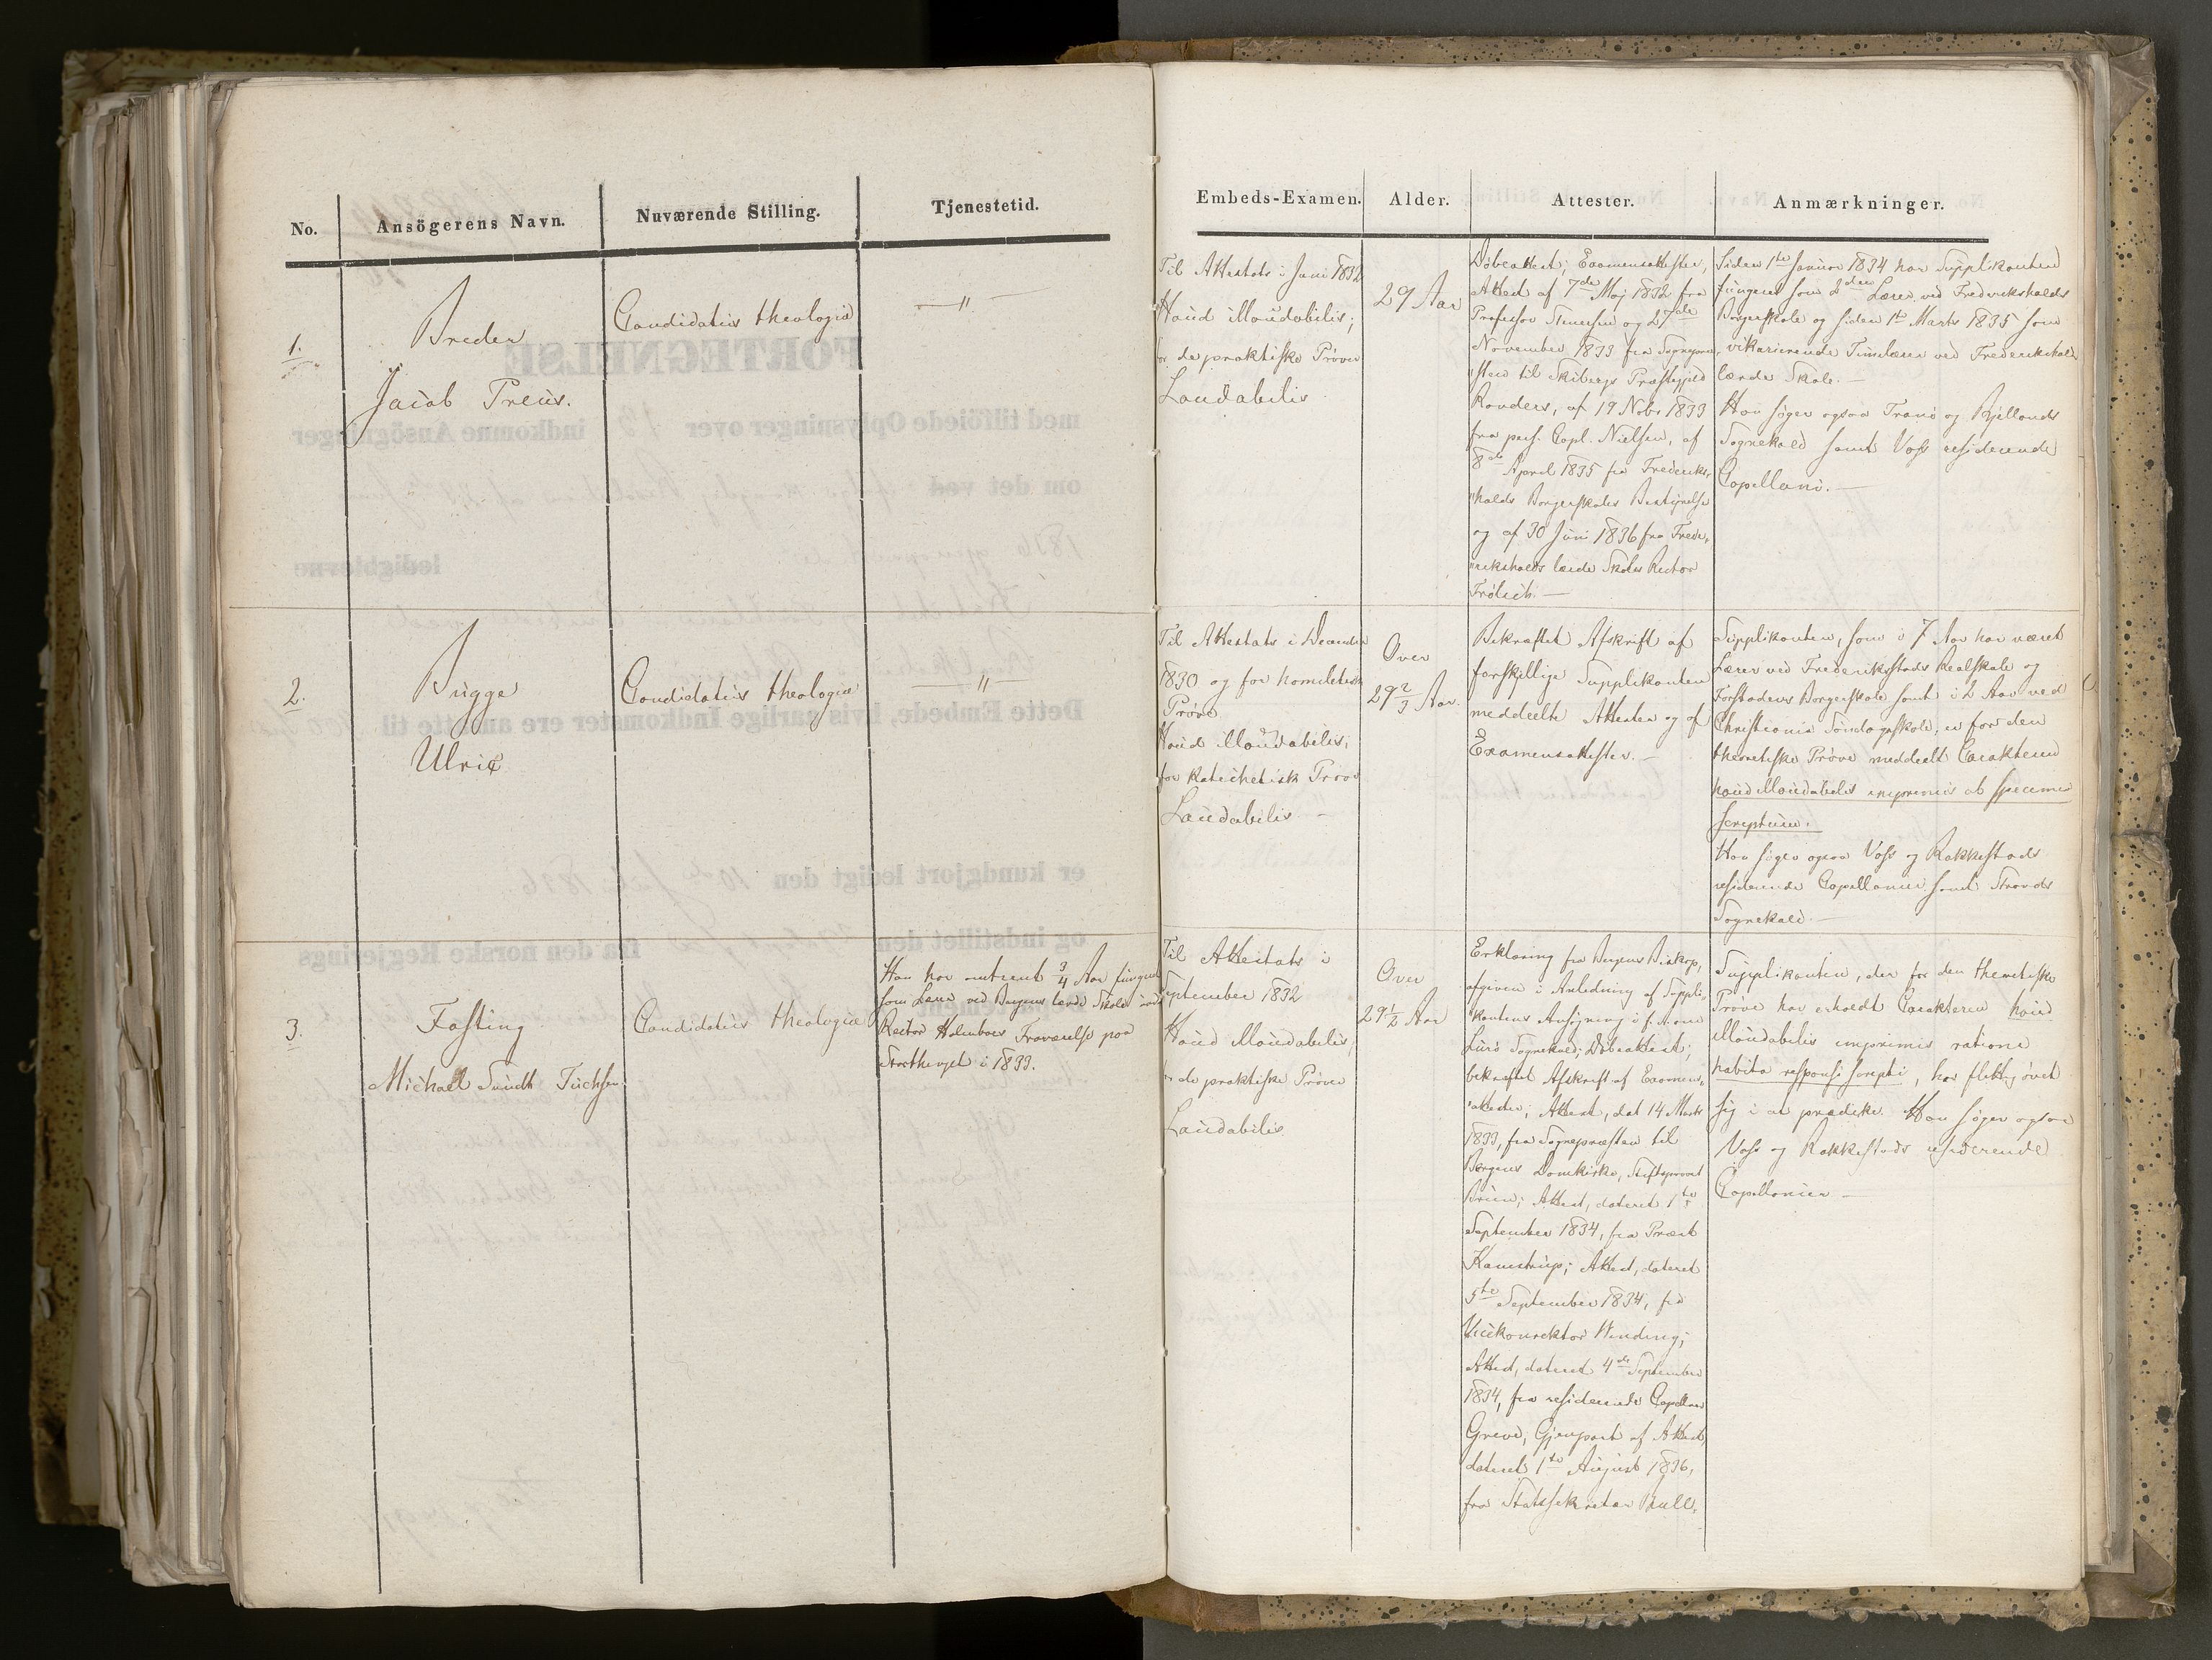 No.
Ansögerens Navn.
Nuværende Stilling.
Tjenestetid.
Embeds-Examen.
Alder.
Attester.
Anmærkninger.
1.
Breder
Jacob Preus.
Candidatus theologiæ
— " —
Til Attestats i Juni 1832
Haud illaudabilis;
for de praktiske Prøver
Laudabilis
29 Aar
Döbeattest; Examensattester;
Attest af 7de Maj 1832 fra
Professor Stenersen og 27de
November 1833 fra Sognepræ-
"sten til Skibergs Præstegjeld
Randers, af 19 Nobr 1833
fra pers. Capl. Nielsen, af
8de April 1835 fra Frederiks-
"halds Borgerskoles Bestyrelse
og af 30 Juni 1836 fra Frede-
"rikshalds lærde Skoles Rector
Frölich. —
Siden 1ste Januar 1834 har Supplikanten
fungeret som 2den Lærer ved Frederikshalds
Borgerskole og siden 1ste Marts 1835 som
vikarierende Timelærer ved Frederikshalds
lærde Skole. —
Han søger ogsaa Tranö og Bjellands
Sognekald samt Voss residerende
Capellani. —
2.
Bugge
Ulric
Candidatus theologiæ
— " —
Til Attestats i December
1830 og for homiletisk
Prøve
Haud illaudabilis;
for katechetisk Prøve
Laudabilis —
Over
29 2/3 Aar.
Bekræftet Afskrift af
forskjellige Supplikanten
meddeelte Attester og af
Examensattester. —
Supplikanten, som i 7 Aar har været
Lærer ved Frederiksstads Realskole og
Forstadens Borgerskole samt i 2 Aar ved
Christiania Søndagsskole, er for den
theoretiske Prøve meddeelt Carakteren
haud illaudabilis imprimis ob specimen
scriptum.
Han søger ogsaa Voss og Rakkestads
residerende Capellanier samt Strands
Sognekald. —
3.
Fasting
Michael Sundt Tuchsen
Candidatus theologiæ
Han har omtrent 3/4 Aar fungeret
som Lærer ved Bergens lærde Skole under
Rector Holmboes Fraværelse paa
Storthinget i 1833.
Til Attestats i
September 1832
Haud illaudabilis;
for de praktiske Prøver
Laudabilis
Over
29 1/2 Aar
Erklæring fra Bergens Biskop,
afgiven i Anledning af Suppli-
"kantens Ansøgning i f. A. om
Lurö Sognekald; Döbeattest;
bekræftet Afskrift af Examens-
"attester; Attest, dat 14 Marts
1833, fra Sognepræsten til
Bergens Domkirke, Stiftsprovst
Bruun; Attest, dateret 1ste
September 1834, fra Præst
Kamstrup; Attest, dateret
5te September 1834, fra
Vicekonrektor Winding;
Attest, dateret 4de September
1834, fra residerende Capellan
Greve; Gjenpart af Attest,
dateret 1ste August 1836,
fra Statssekretær Bull.
Supplikanten, der for den theoretiske
Prøve har erholdt Carakteren haud
illaudabilis imprimis ratione
habita responsi scripti, har flittig øvet
sig i at prædike. Han søger ogsaa
Voss og Rakkestads residerende
Capellanier —